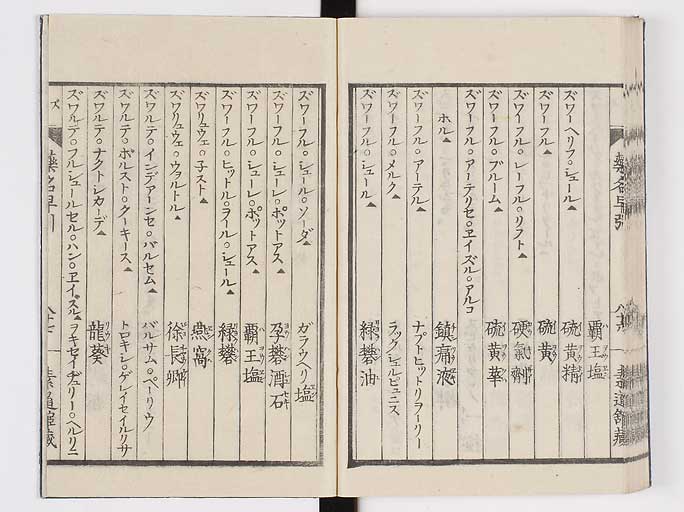 藥名早引
覇王塩
ズワーヘリフ○シュール▲ 硫黄精
ズワーフル▲ 硫黄
ズワーフル○レーフル○リフト▲ 硬氣劑
ズワーフル○ブルーム▲ 硫黄華
ズワーフル○アーテリセ○ヱイズル○アルコ
ホル▲ 鎮痛液
ズワーフル○アーテル▲ ナプトヒットリヲーリー
ズワーフル○メルク▲ ラックシュルピュニス
ズワーフル○シュール▲ 緑礬油
ズワーフル○シュール○ソーダ▲ ガラウヘリ塩
ズワーフル○シューレ○ポットアス▲ 孕礬酒石
ズワーフル○シューレ○ポットアス▲ 覇王塩
ズワーフル○ヒットル○ヲイル○シュール▲ 緑礬
ズワリュウェ○子スト▲ 燕窩
ズワリュウェ○ウヲルトル▲ 徐長卿
ズワルテ○インデアーンセ○バルセム▲ バルサム○ペーリウ
ズワルテ○ボルスト○クーキース▲ トロキシ○ゲレイセイルリサ
ズワルテ○ナクトシカーデ▲ 龍葵
ズワルテ○フルシュールセル○ハン○ヱイズル▲ ヲキセイヂュリー○ヘルリニ
ズ
藥名早引